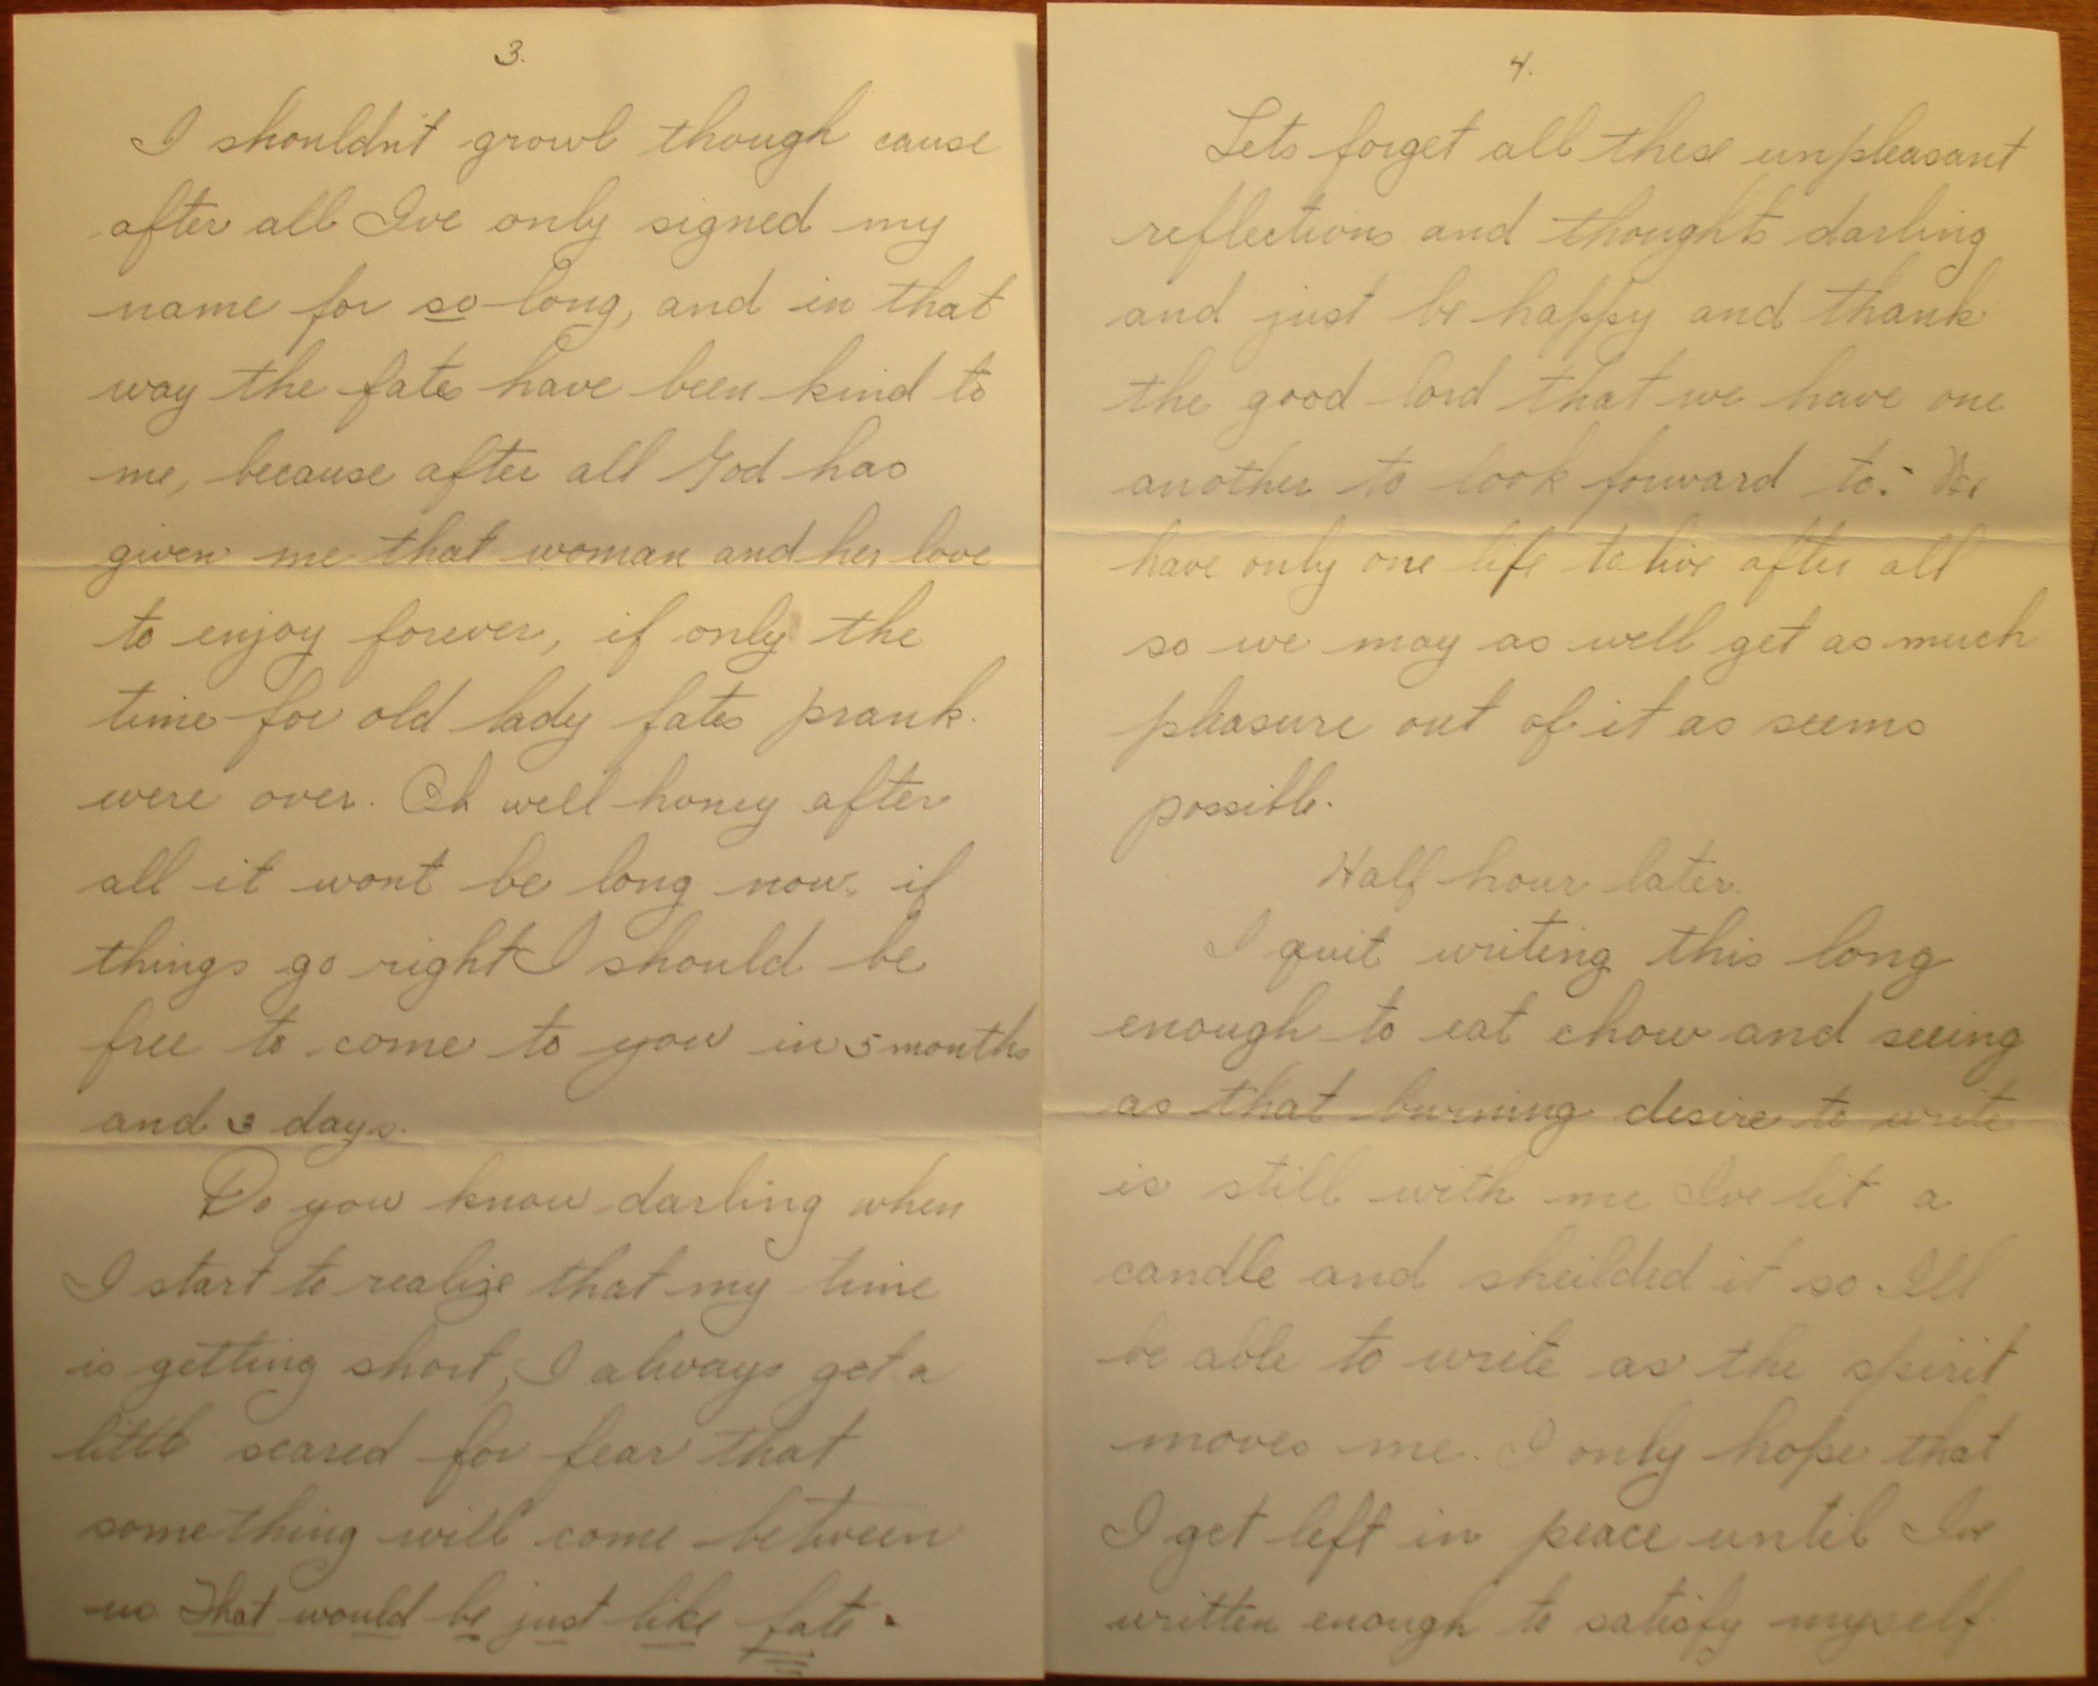 3.
I shouldn't growl though cause
after all Ive only signed my
name for so long, and in that
way the fates have been kind to
me, because after all God has
given me that woman and her love
to enjoy forever, if only the
time for old lady fates prank
were over. Oh well honey after
all it wont be long now, if
things go right I should be
free to come to you in 5 months
and 3 days.
Do you know darling when
I start to realize that my time
is getting short, I always get a
little scared for fear that
something will come between
us. That would be just like fate.
4.
Lets forget all these unpleasant
reflections and thoughts darling
and just be happy and thank
the good lord that we have one
another to look forward to. We
have only one life to live after all
so we may as well get as much
pleasure out of it as seems
possible.
Half hour later.
I quit writing this long
enough to eat chow and seeing
as that burning desire to write
is still with me Ive lit a
candle and sheilded it so Ill
be able to write as the spirit
moves me. I only hope that
I get left in peace until Ive
written enough to satisfy myself.